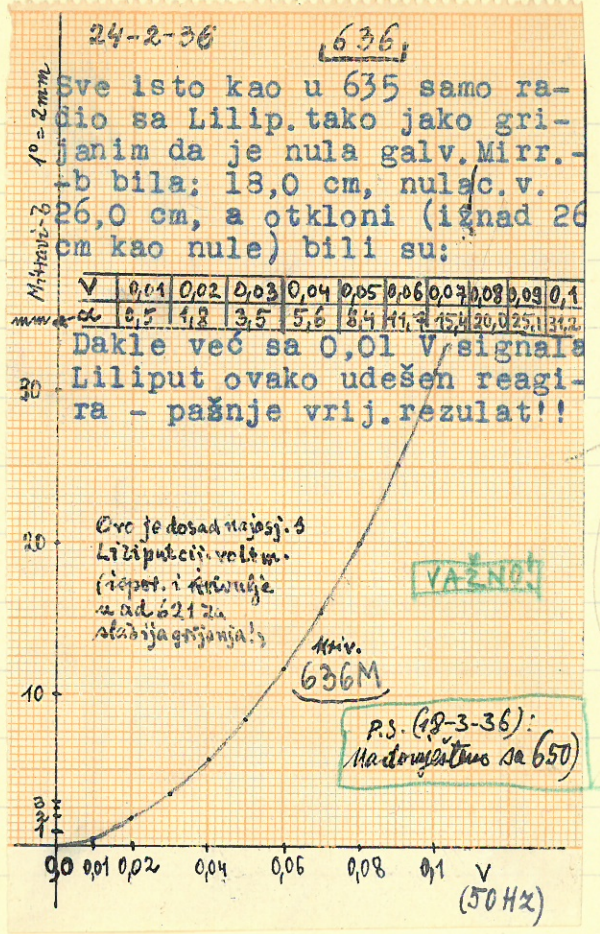 24-2-36
636
Sve isto kao u 635 samo ra-
dio sa Lilip.tako jako gri-
janim da je nula galv.Mirr.-
-b bila: 18,0 cm, nula c.v.
26,0 cm, a otkloni (iznad 26
cm kao nule) bili su:
V 0,01 0,02 0,03 0,04 0,05 0,06 0,07 0,08 0,09 0,1
α 0,5 1,8 3,5 5,6 8,4 11,7 15,4 20,0 25,1 31,2
Dakle već sa 0,01 V signala
Liliput ovako udešen reagi-
ra - pažnje vrij.rezulat!!
1° = 2mm
mm
30
20
10
3
2
1
Ovo je dosad najosj.
Liliputcij. voltm.
i krivulje
621 za
slabija grijanja!
VAŽNO!
Kriv.
636M
P.S. (18-3-36):
Nadomješteno sa 650)
0,0 0,01 0,02 0,04 0,06 0,08 0,1 V
(50Hz)